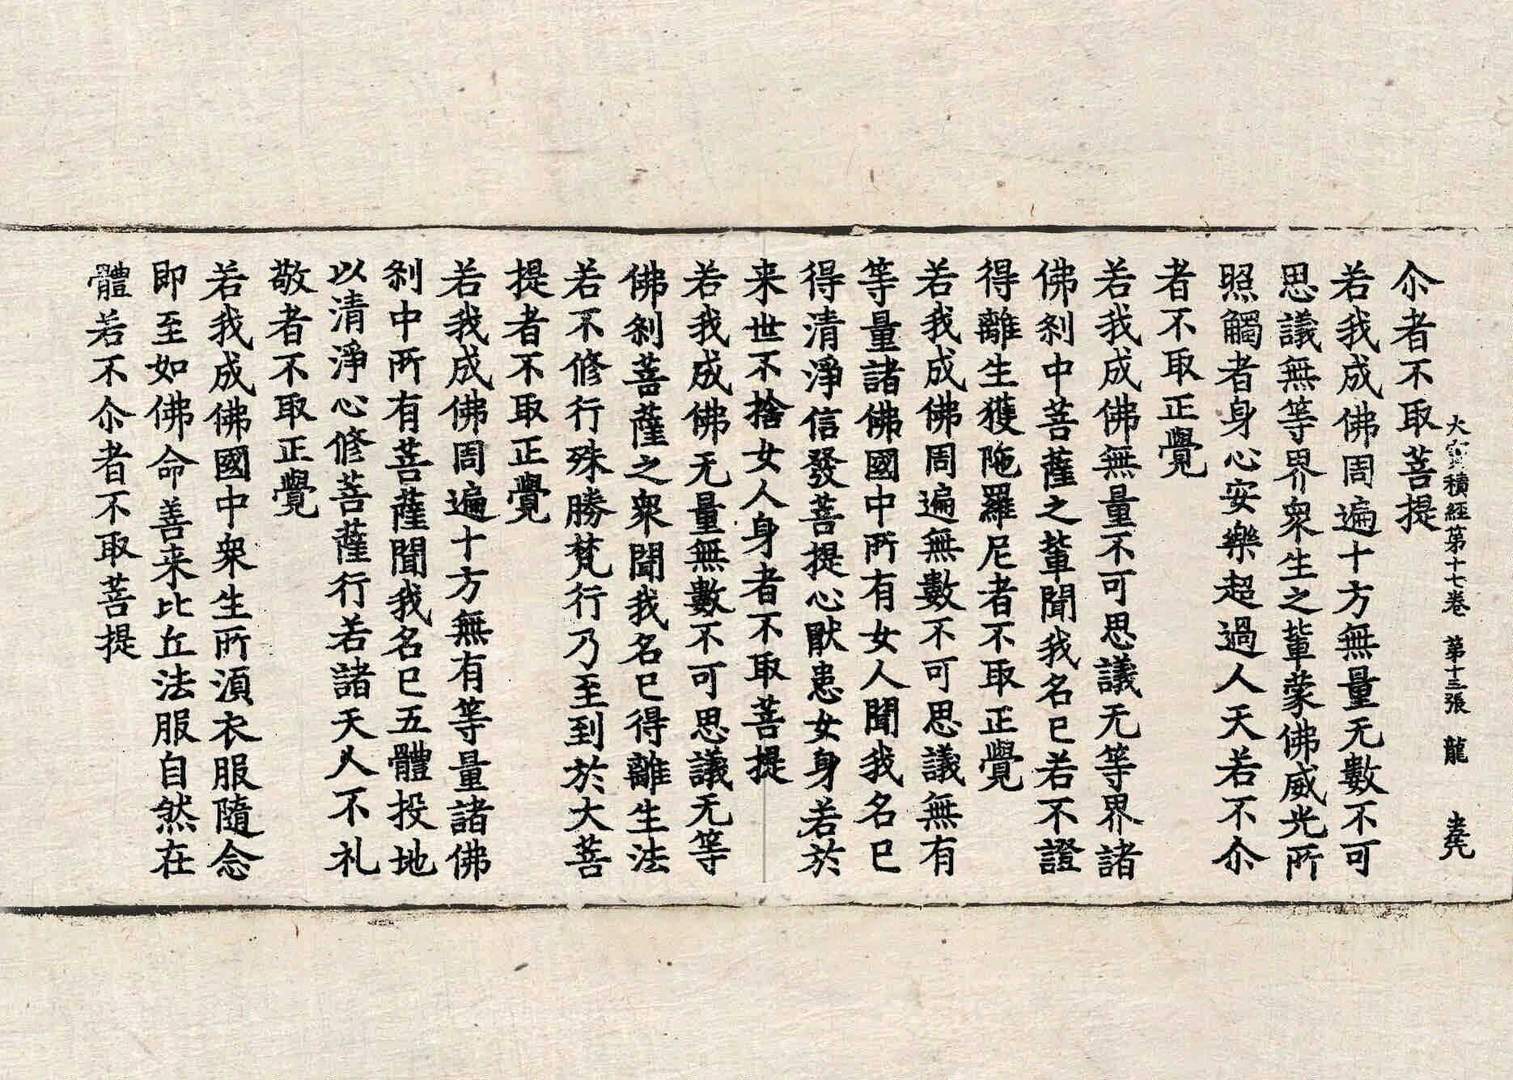 大寶積經第十七卷 第十三張 龍 尭
尒者不取菩提
若我成佛周遍十方無量无數不可
思議無等界衆生之輩蒙佛威光所
照觸者身心安樂超過人天若不尒
者不取正覺
若我成佛無量不可思議无等界諸
佛刹中菩薩之輩聞我名已若不證
得離生獲陁羅尼者不取正覺
若我成佛周遍無數不可思議無有
等量諸佛國中所有女人聞我名已
得清淨信發菩提心猒患女身若於
来世不捨女人身者不取菩提
若我成佛无量無數不可思議无等
佛刹菩薩之衆聞我名已得離生法
若不修行殊勝梵行乃至到於大菩
提者不取正覺
若我成佛周遍十方無有等量諸佛
刹中所有菩薩聞我名已五體投地
以清淨心修菩薩行若諸天人不礼
敬者不取正覺
若我成佛國中衆生所湏衣服隨念
即至如佛命善来比丘法服自然在
體若不尒者不取菩提